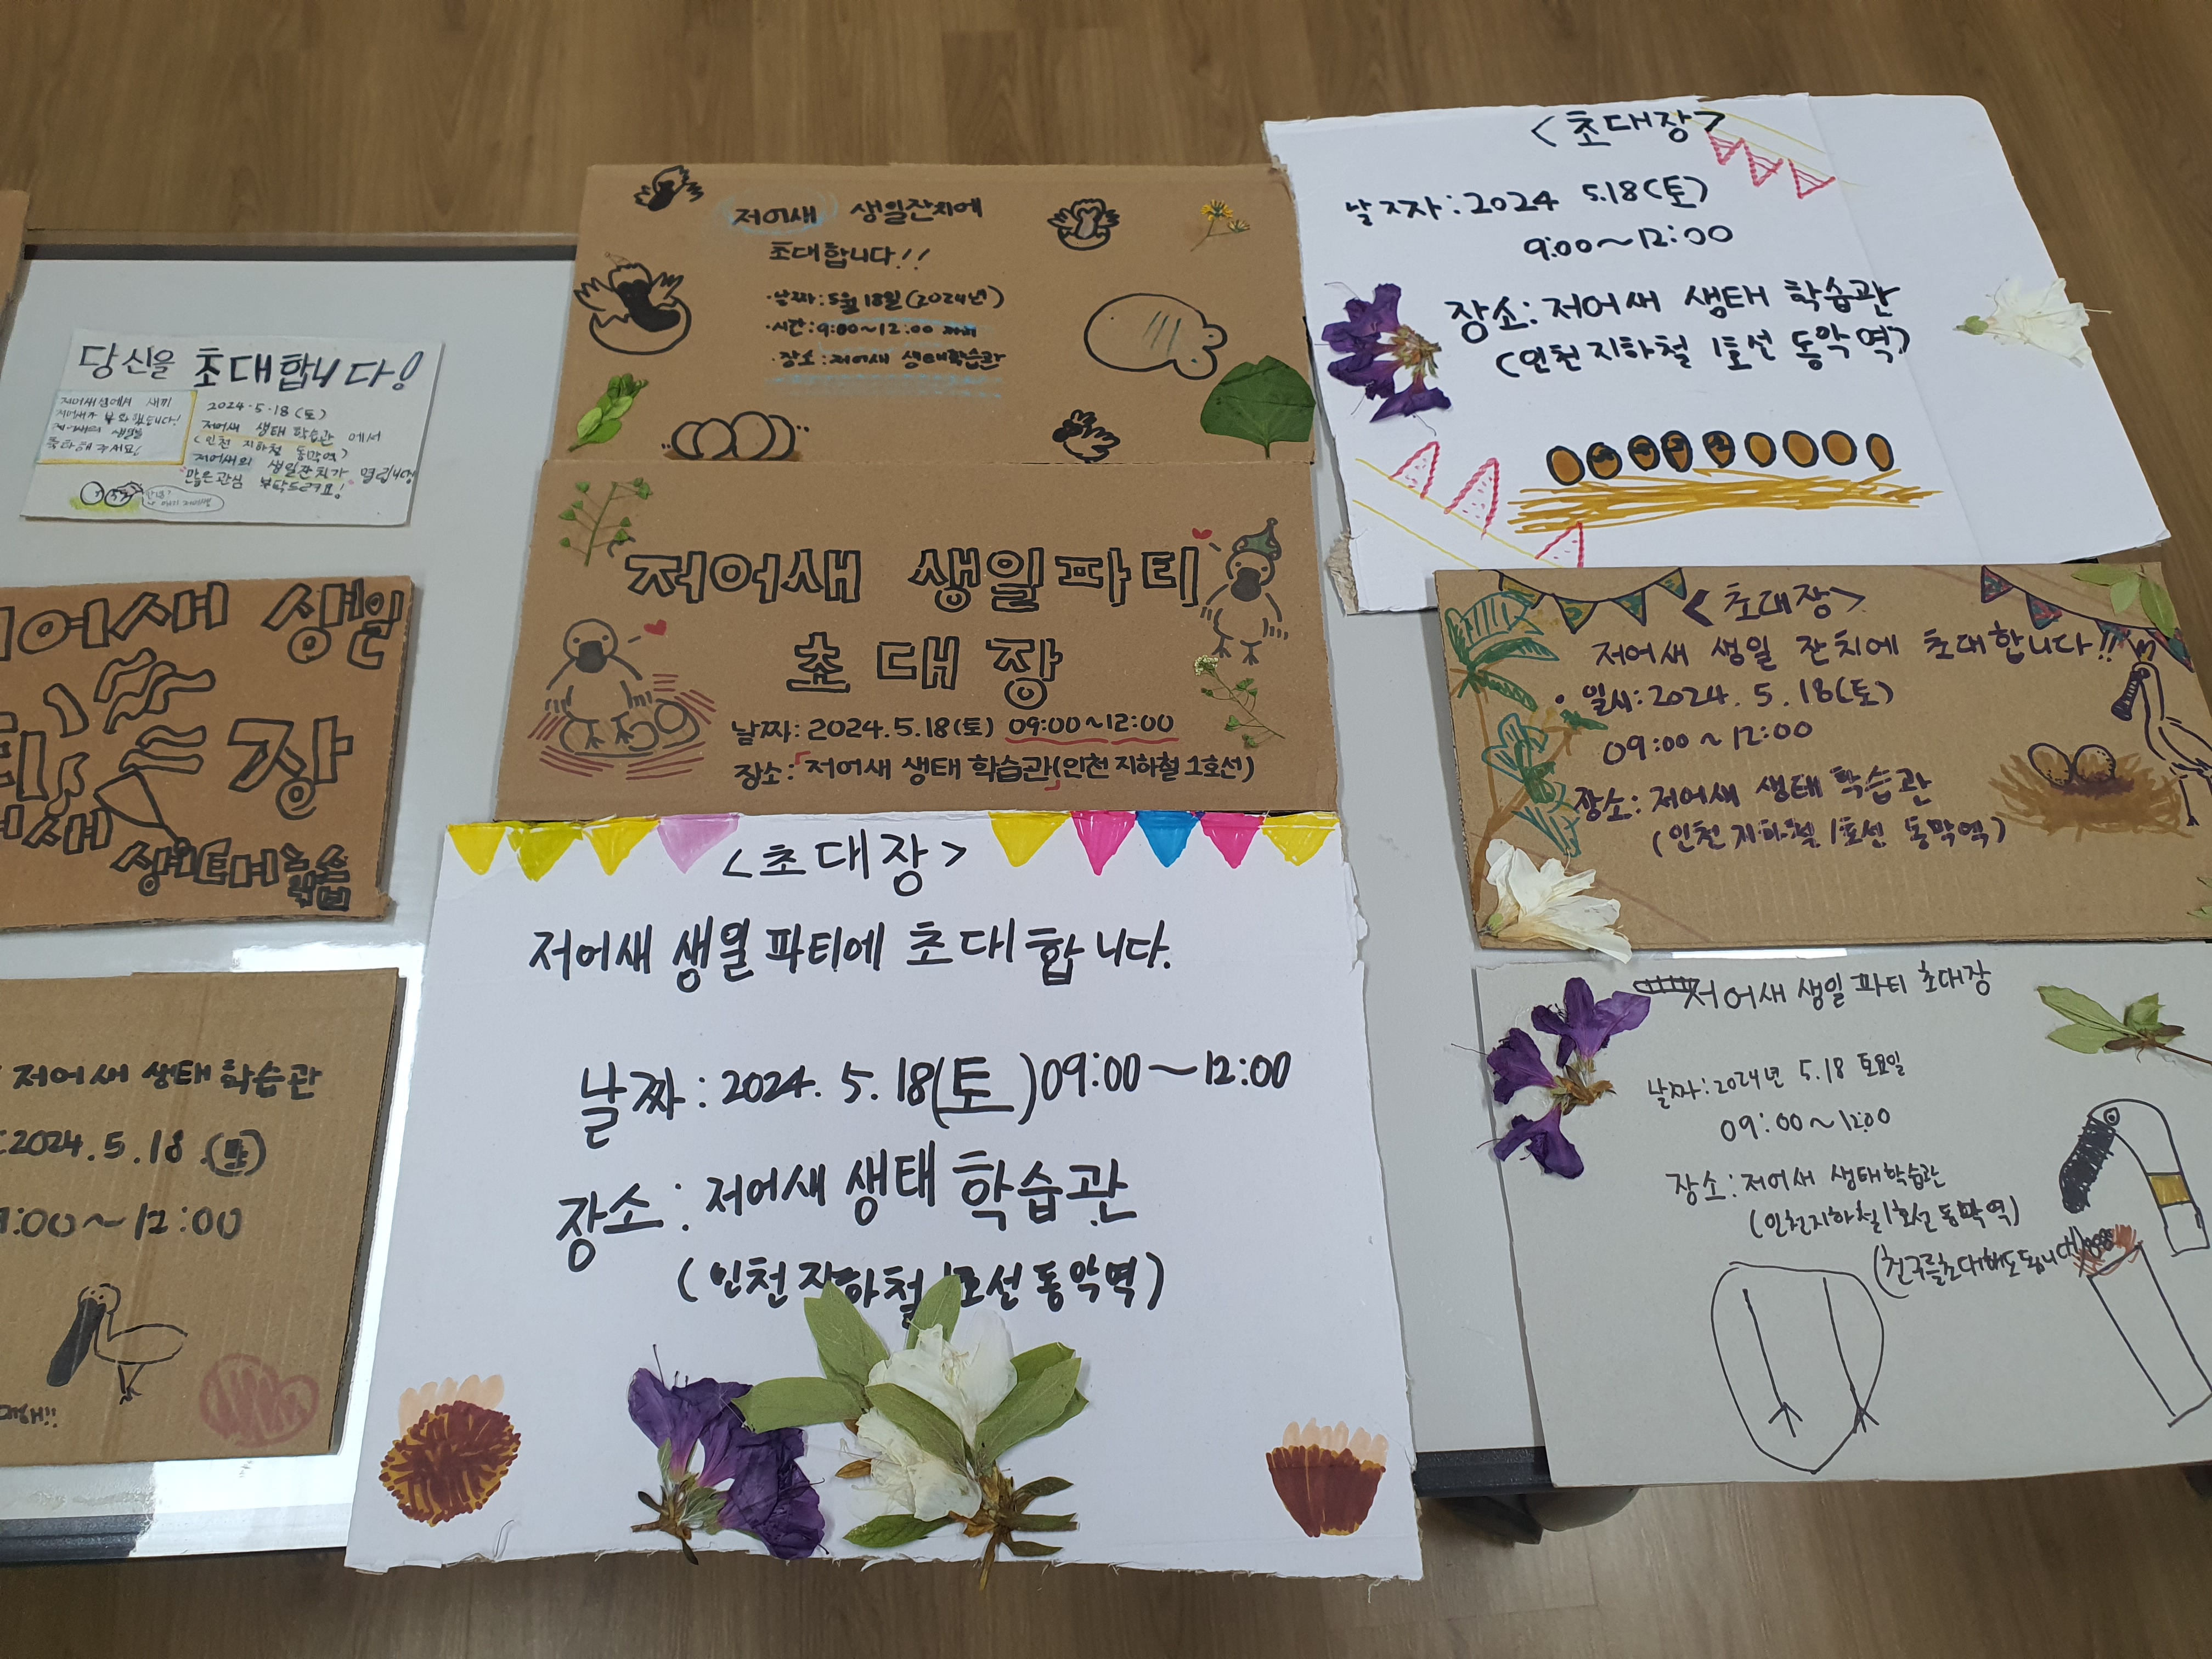 당신을 초대합니다!
저어새섬에서 새끼
저어새가 부화했습니다!
저어새의 생일을
축하해주세요!
2024.5.18(토)
저어새 생태 학습관 에서
(인천 지하철 동막역)
저어새의 생일잔치가 열립니다
많은관심 부탁드려요!
저어새 생일
장
생태학습
저어새 생태 학습관
2024.5.18.(토)
9:00~12:00
저어새 생일잔치에
초대합니다!!
·날짜:5월 18일(2024년)
·시간:9:00~12:00 까지
·장소:저어새 생태학습관
저어새 생일파티
초대장
날짜: 2024.5.18(토) 09:00~12:00
장소:「저어새 생태 학습관(인천 지하철 1호선)」
<초대장>
저어새 생일 파티에 초대합니다.
날짜: 2024. 5. 18(토) 09:00~12:00
장소: 저어새 생태 학습관
(인천 지하철 1호선 동악역)
<초대장>
날짜:2024 5.18(토)
9:00~12:00
장소:저어새 생태 학습관
(인천 지하철 1호선 동악역)
<초대장>
저어새 생일 잔치에 초대합니다!!
• 일시:2024. 5. 18(토)
09:00~12:00
장소: 저어새 생태 학습관
(인천 지하철 1호선 동막역)
저어새 생일 파티 초대장
날짜:2024년 5.18 토요일
09:00~12:00
장소:저어새 생태학습관
(인천지하철1호선 동막역)
(친구를초대해도됩니다)